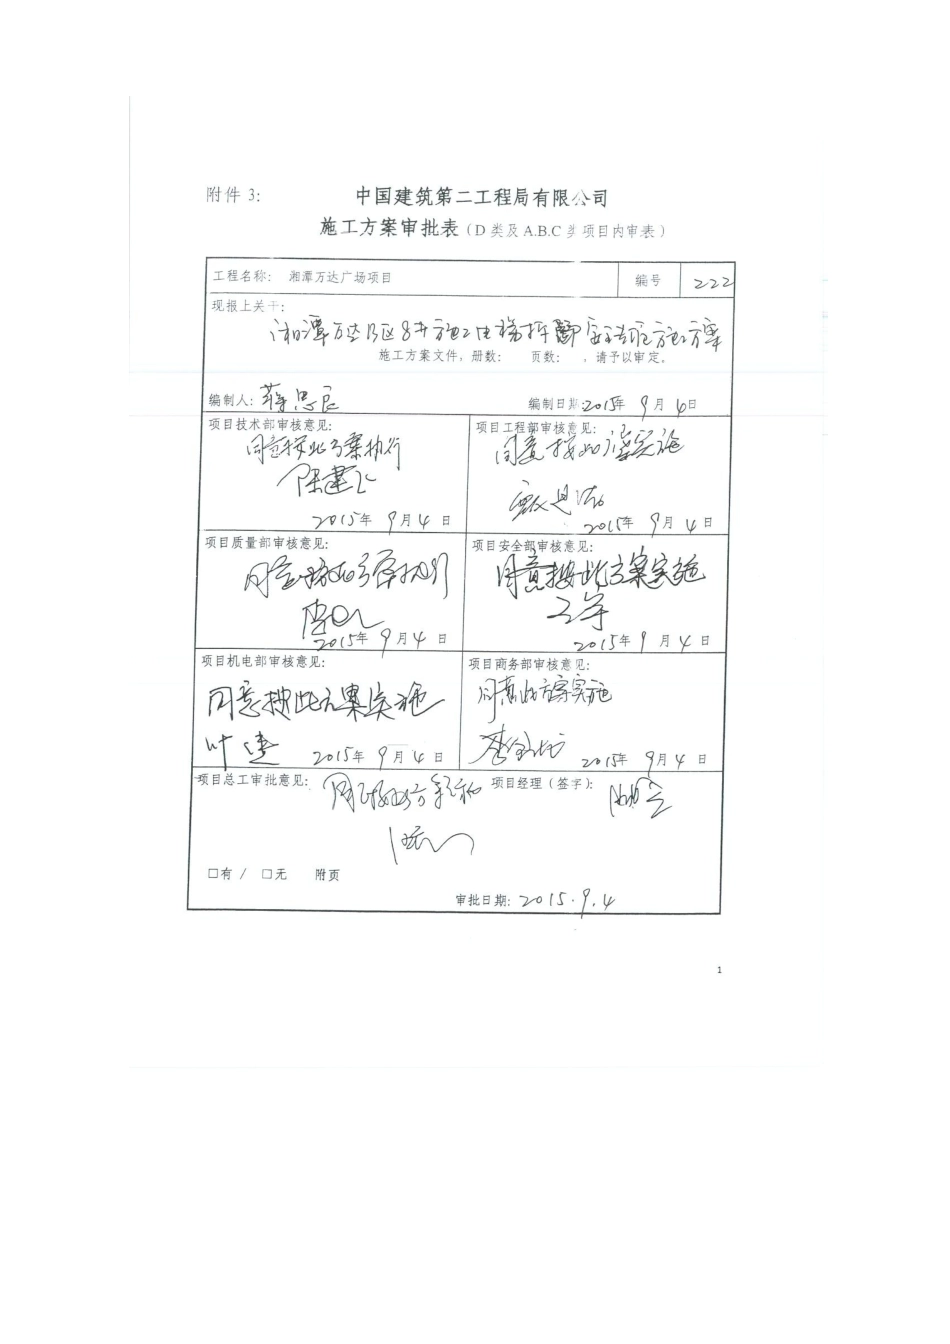 附件 3: 中国建筑第二工程局有限公司
施工方案审批表（D 类及 A.B.C 类项目内审表）
工程名称: 湘潭万达广场项目 编号 222
现报上关于:
湘潭万达B区8#施工电梯拆 安全专项施工方案
施工方案文件，册数: 页数: ，请予以审定。
编制人: 蒋思良 编制日期:2015年 9月 4日
项目技术部审核意见: 项目工程部审核意见:
同意按此方案执行 同意按此方案实施
陈建飞
2015年 9月4日 2015年 9月4日
项目质量部审核意见: 项目安全部审核意见:
同意按此方案执行 同意按此方案实施
2015年 9月4日 2015年 9月4日
项目机电部审核意见: 项目商务部审核意见:
同意按此方案实施 同意此方案实施
叶 2015年 9月4日 2015年 9月4日
项目总工审批意见: 项目经理（签字）:
□有 / □无 附页
审批日期: 2015.9.4
1